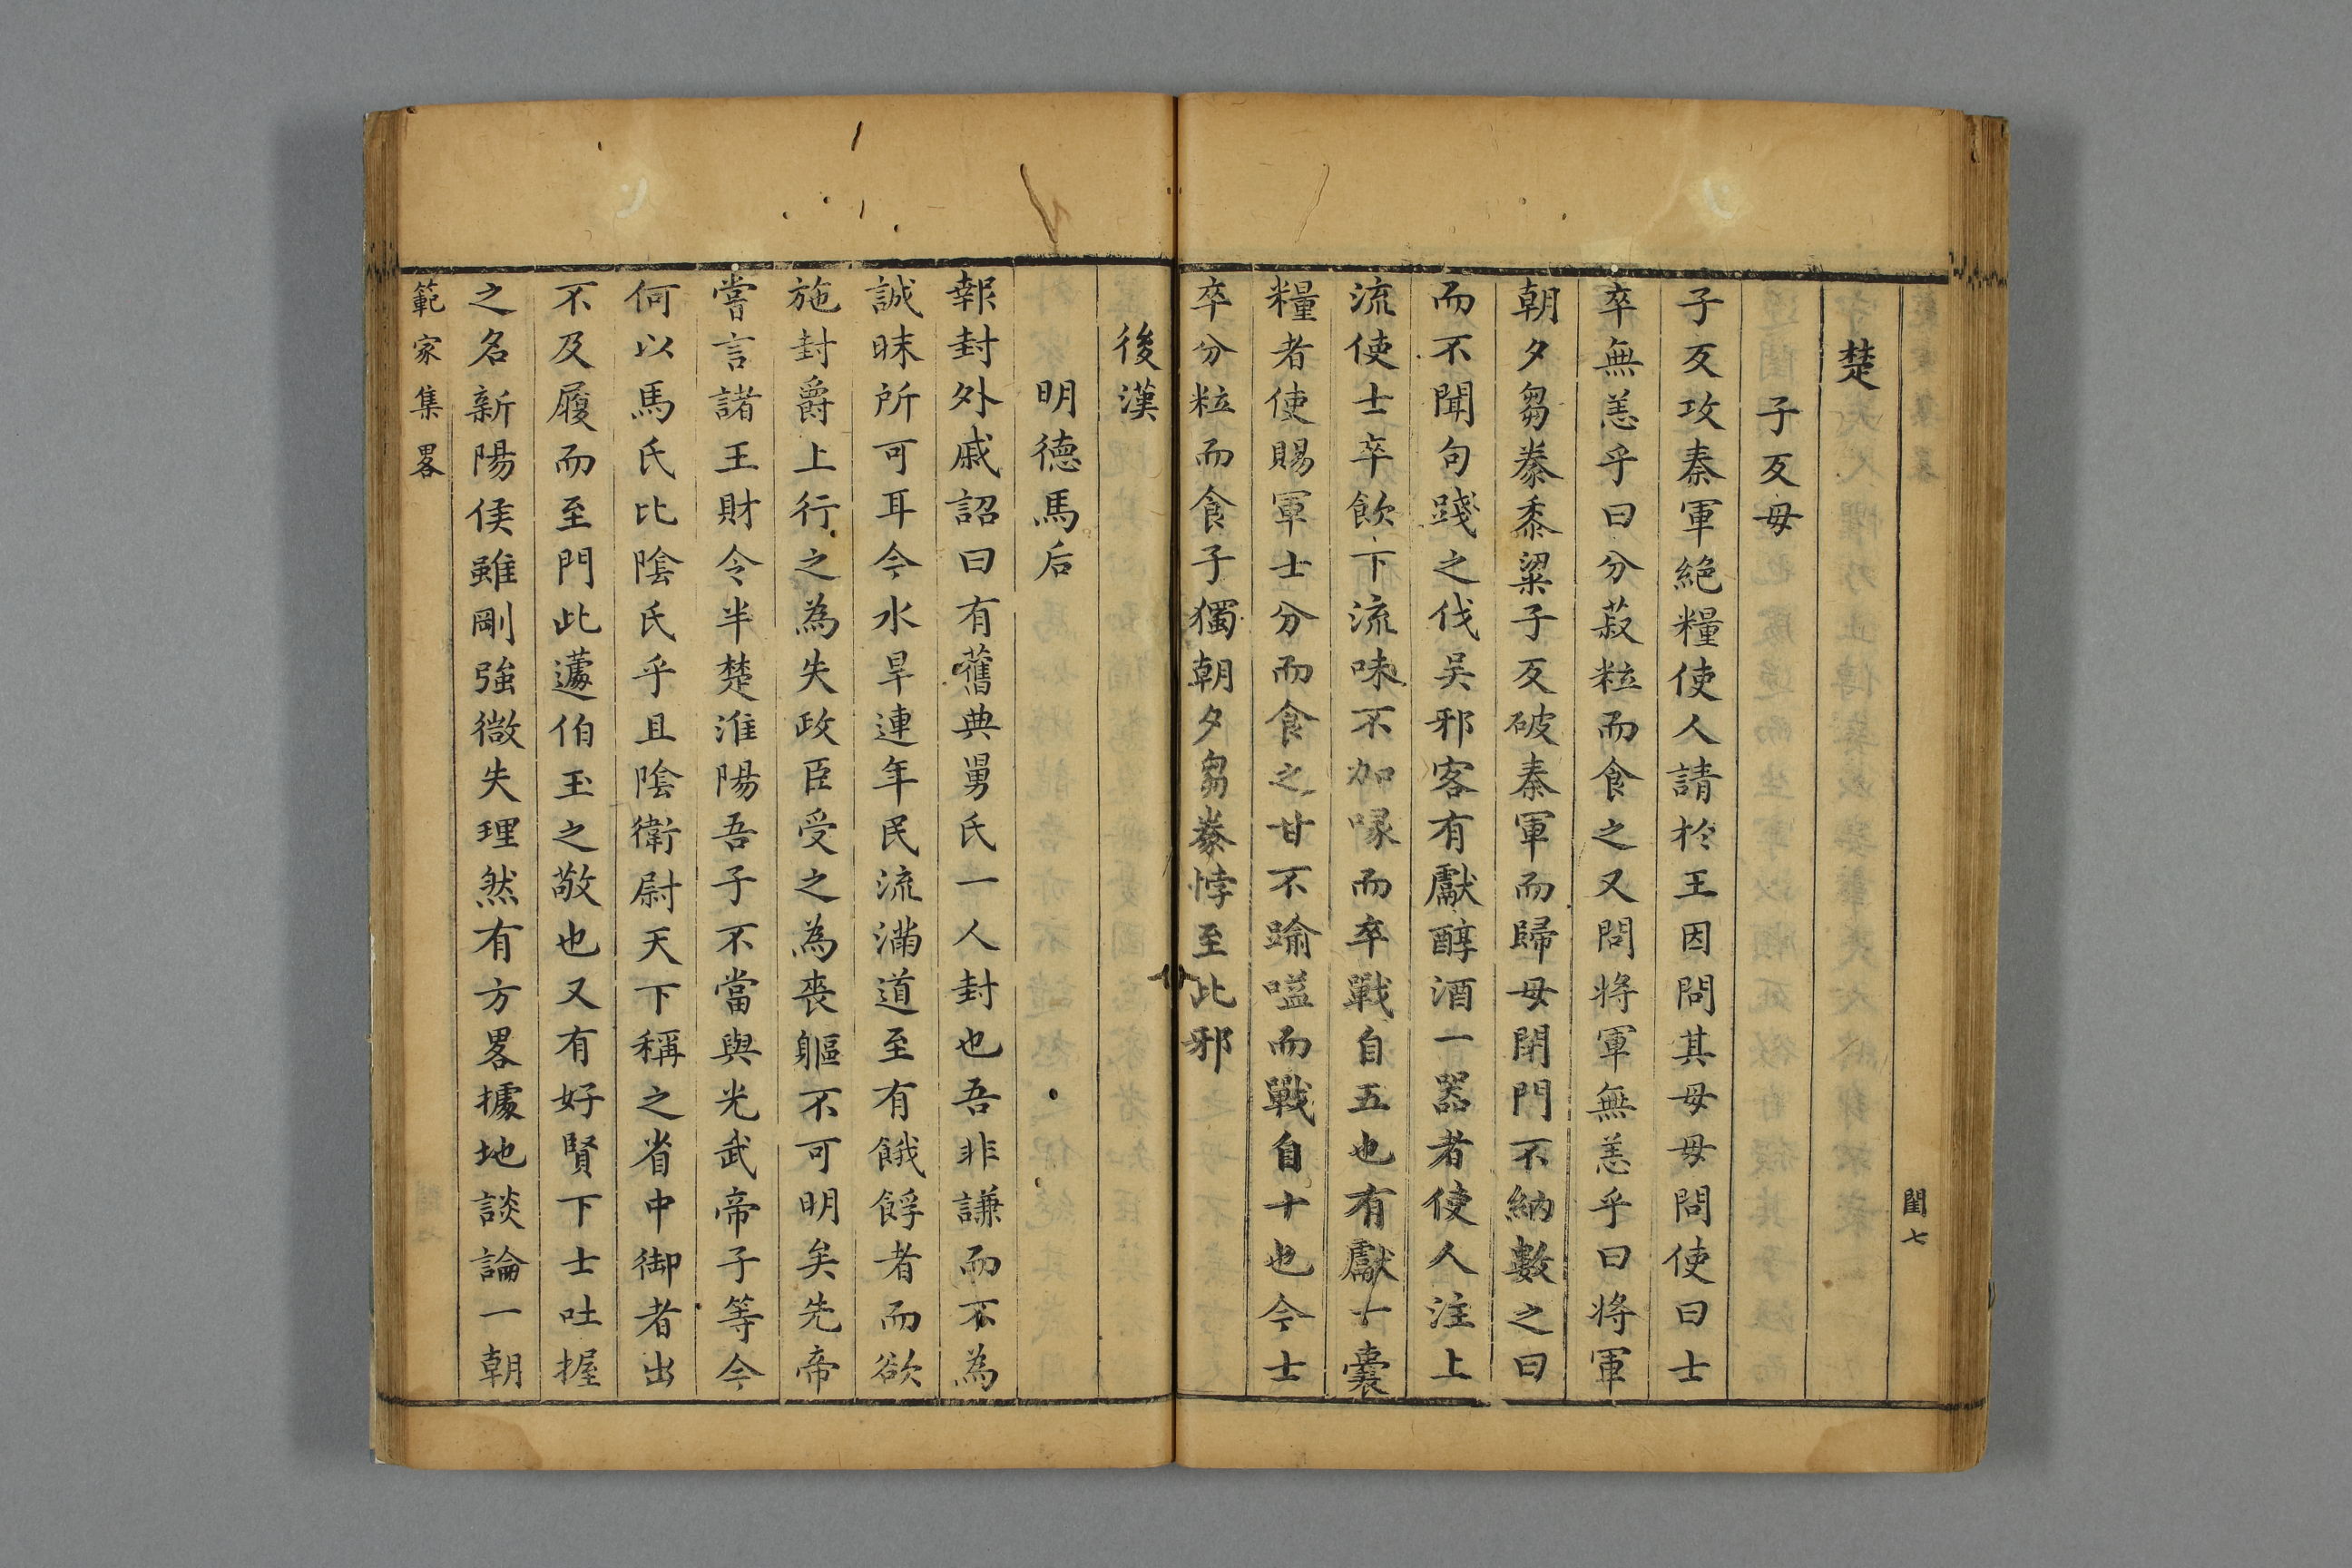 閨七
楚
子反母
子反攻秦軍絕糧使人請於王因問其母母問使曰士
卒無恙乎曰分菽粒而食之又問將軍無恙乎曰將軍
朝夕芻豢黍粱子反破秦軍而歸母閉門不納數之曰
而不聞句踐之伐吳邪客有獻醇酒一器者使人注上
流使士卒飲下流味不加喙而卒戰自五也有獻一囊
糧者使賜軍士分而食之甘不踰嗌而戰自十也今士
卒分粒而食子獨朝夕芻豢悖至此邪
後漢
明德馬后
報封外戚詔曰有舊典舅氏一人封也吾非謙而不為
誠昧所可耳今水旱連年民流滿道至有餓餑者而欲
施封爵上行之為失政臣受之為喪軀不可明矣先帝
嘗言諸王財令半楚淮陽吾子不當與光武帝子等今
何以馬氏比陰氏乎且陰衛尉天下稱之省中御者出
不及履而至門此蘧伯玉之敬也又有好賢下士吐握
之名新陽侯雖剛強微失理然有方畧據地談論一朝
範家集畧